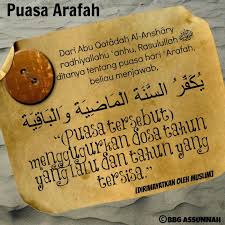 Puasa Arafah
Dari Abu Qatâdah Al-Anshâry
radhiyallahu 'anhu, Rasulullah ﷺ
ditanya tentang puasa hari 'Arafah,
beliau menjawab,
يُكَفِّرُ السَّنَةَ الْمَاضِيَةَ وَالْبَاقِيَةَ
"(Puasa tersebut)
menggugurkan dosa tahun
yang lalu dan tahun yang
tersisa."
(DIRIWAYATKAN OLEH MUSLIM)
©BBG ASSUNNAH